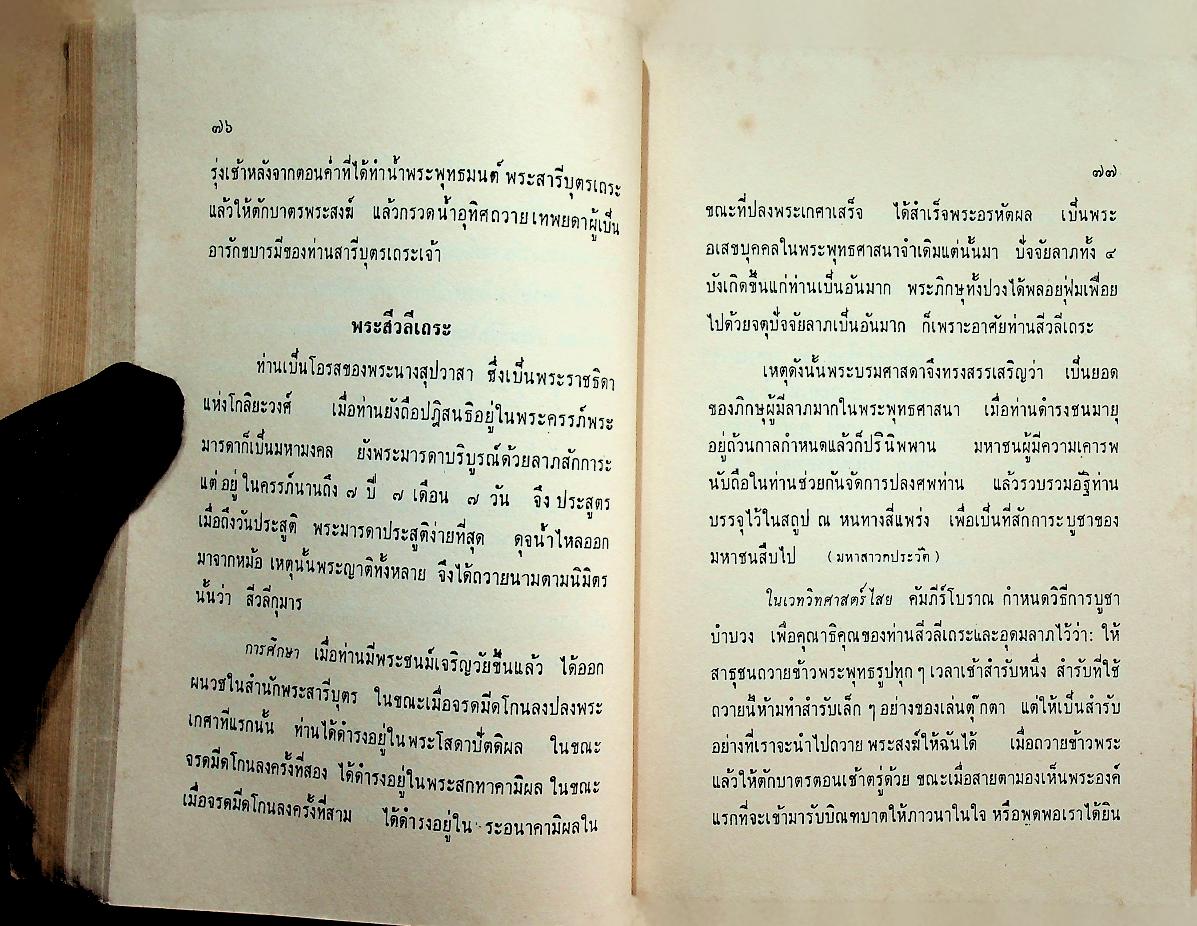 ๗๖
รุ่งเช้าหลังจากตอนค่ำที่ได้ทำน้ำพระพุทธมนต์ พระสารีบุตรเถระ
แล้วให้ตักบาตรพระสงฆ์ แล้วกรวดน้ำอุทิศถวายเทพยดาผู้เป็น
อารักขบารมีของท่านสารีบุตรเถระเจ้า
พระสีวลีเถระ
ท่านเป็นโอรสของพระนางสุปวาสา ซึ่งเป็นพระราชธิดา
แห่งโกลิยะวงศ์ เมื่อท่านยังถือปฎิสนธิอยู่ในพระครรภ์พระ
มารดาก็เป็นมหามงคล ยังพระมารดาบริบูรณ์ด้วยลาภสักการะ
แต่อยู่ในครรภ์นานถึง ๗ ปี ๗ เดือน ๗ วัน จึงประสูตร
เมื่อถึงวันประสูติ พระมารดาประสูติง่ายที่สุด ดุจน้ำไหลออก
มาจากหม้อ เหตุนั้นพระญาติทั้งหลาย จึงได้ถวายนามตามนิมิตร
นั้นว่า สีวลีกุมาร
การศึกษา เมื่อท่านมีพระชนม์เจริญวัยขึ้นแล้ว ได้ออก
ผนวชในสำนักพระสารีบุตร ในขณะเมื่อจรดมีดโกนลงปลงพระ
เกศาที่แรกนั้น ท่านได้ดำรงอยู่ในพระโสดาปัตติผล ในขณะ
จรดมีดโกนลงครั้งที่สอง ได้ดำรงอยู่ในพระสกทาคามิผล ในขณะ
เมื่อจรดมีดโกนลงครั้งที่สาม ได้ดำรงอยู่ใน ระอนาคามิผลใน
๗๗
ขณะที่ปลงพระเกศาเสร็จ ได้สำเร็จพระอรหัตผล เป็นพระ
อเสขบุคคลในพระพุทธศาสนาจำเดิมแต่นั้นมา ปัจจัยลาภทั้ง ๔
บังเกิดขึ้นแก่ท่านเป็นอันมาก พระภิกษุทั้งปวงได้พลอยฟุ่มเฟือย
ไปด้วยจตุปัจจัยลาภเป็นอันมาก ก็เพราะอาศัยท่านสีวลีเถระ
เหตุดังนั้นพระบรมศาสดาจึงทรงสรรเสริญว่า เป็นยอด
ของภิกษุผู้มีลาภมากในพระพุทธศาสนา เมื่อท่านดำรงชนมายุ
อยู่ถ้วนกาลกำหนดแล้วก็ปรินิพพาน มหาชนผู้มีความเคารพ
นับถือในท่านช่วยกันจัดการปลงศพท่าน แล้วรวบรวมอัฐิท่าน
บรรจุไว้ในสถูป ณ หนทางสี่แพร่ง เพื่อเป็นที่สักการะบูชาของ
มหาชนสืบไป (มหาสาวกประวัติ)
ในเวทวิทศาสตร์ไสย คัมภีร์โบราณ กำหนดวิธีการบูชา
บำบวง เพื่อคุณาธิคุณของท่านสีวลีเถระและอุดมลาภไว้ว่า: ให้
สาธุชนถวายข้าวพระพุทธรูปทุก ๆ เวลาเช้าสำรับหนึ่ง สำรับที่ใช้
ถวายนี้ห้ามทำสำรับเล็ก ๆ อย่างของเล่นตุ๊กตา แต่ให้เป็นสำรับ
อย่างที่เราจะนำไปถวายพระสงฆ์ให้ฉันได้ เมื่อถวายข้าวพระ
แล้วให้ตักบาตรตอนเช้าตรู่ด้วย ขณะเมื่อสายตามองเห็นพระองค์
แรกที่จะเข้ามารับบิณฑบาตให้ภาวนาในใจ หรือพูดพอเราได้ยิน